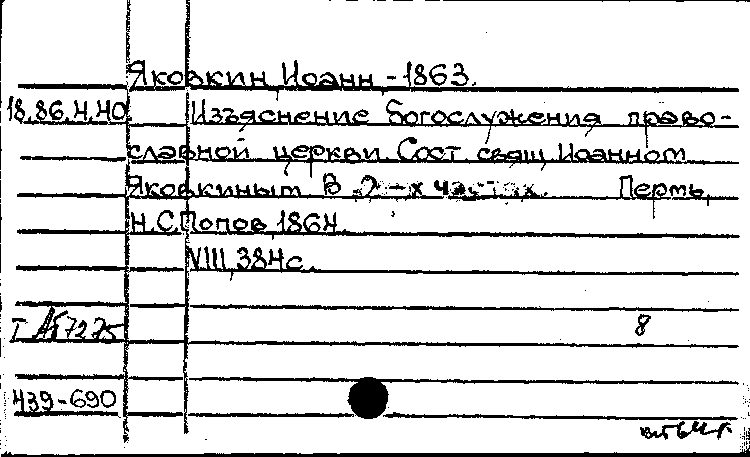 Яковкин, Иоанн, -1863.
18.86.4.40. Изъяснение богослужения право-
славной церкви. Сост. свящ. Иоанном
Яковкиным. В 2-х частях. Пермь,
Н.С.Попов, 1864.
VIII, 384с.
8
439-690